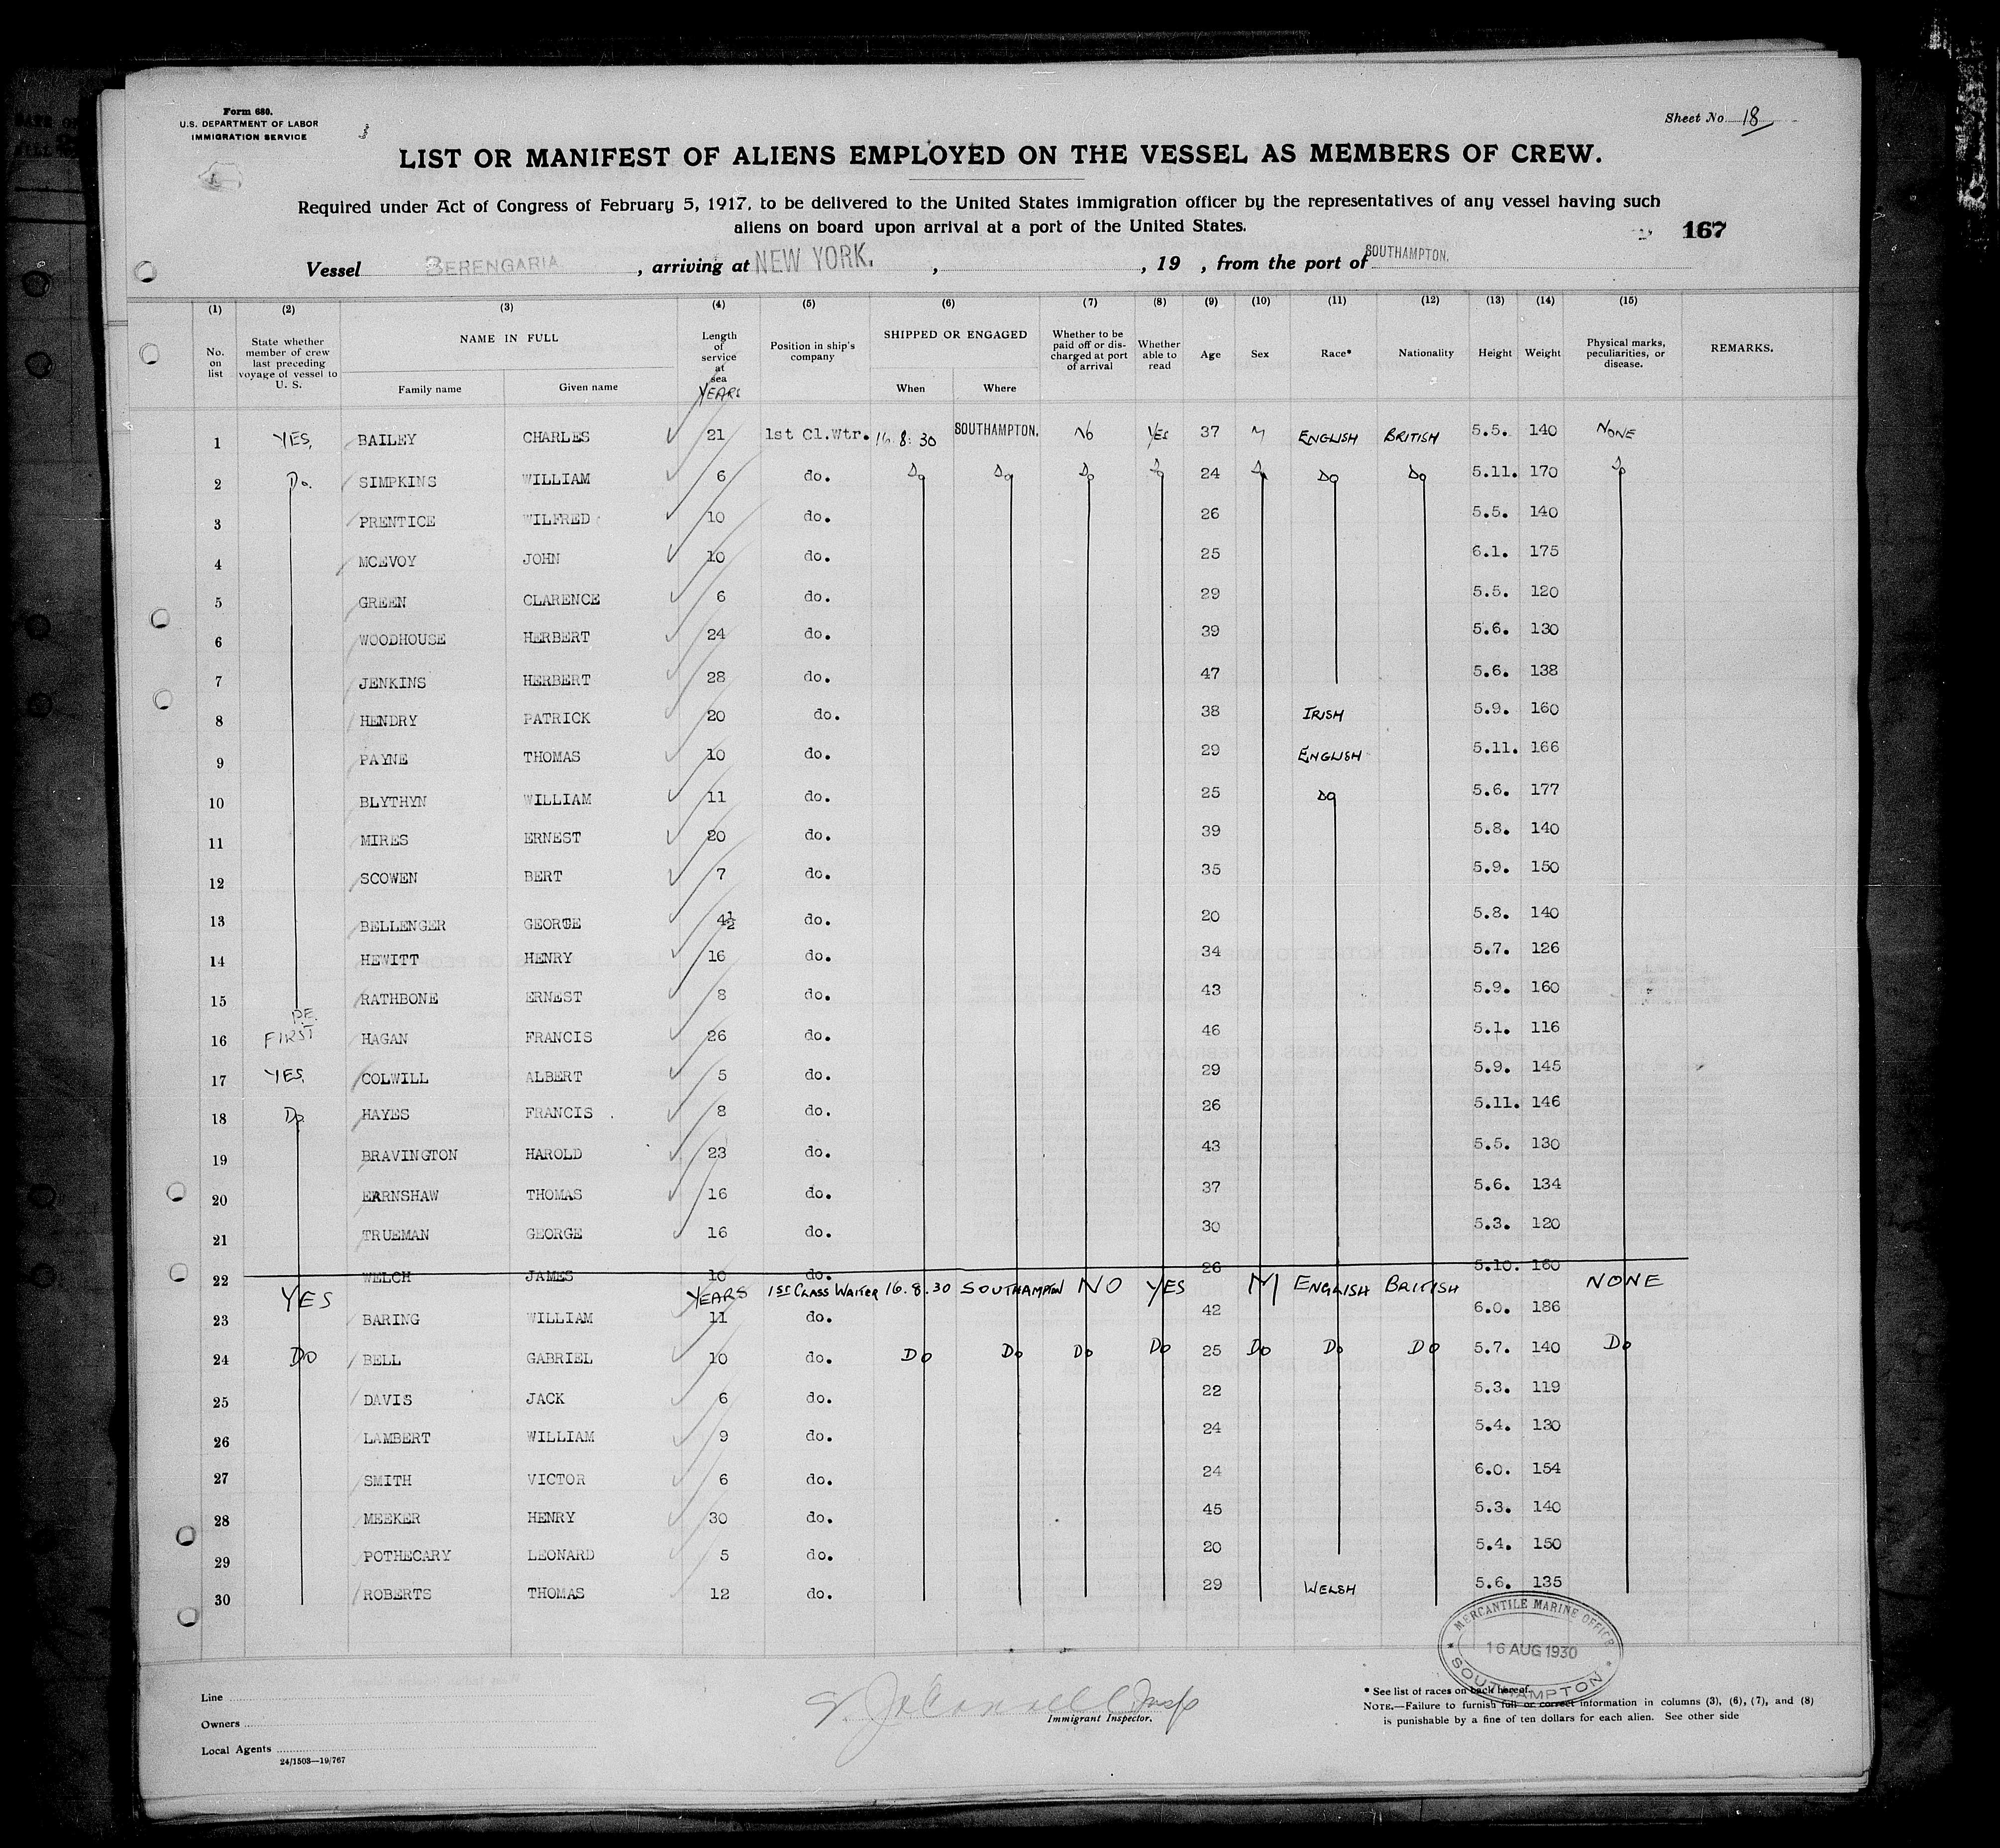 Form 680.
U.S. DEPARTMENT OF LABOR
IMMIGRATION SERVICE
Sheet No. 18
LIST OR MANIFEST OF ALIENS EMPLOYED ON THE VESSEL AS MEMBERS OF CREW.
Required under Act of Congress of February 5, 1917, to be delivered to the United States immigration officer by the representatives of any vessel having such
aliens on board upon arrival at a port of the United States.
167
Vessel BERENGARIA, arriving at NEW YORK. , , 19 , from the port of SOUTHAMPTON.
(1) (2) (3) (4) (5) (6) (7) (8) (9) (10) (11) (12) (13) (14) (15)
No. on list State whether member of crew last preceding voyage of vessel to U. S. NAME IN FULL Length of service at sea Position in ship's company SHIPPED OR ENGAGED Whether to be paid off or discharged at port of arrival Whether able to read Age Sex Race* Nationality Height Weight Physical marks, peculiarities, or disease. REMARKS.
Family name Given name YEARS When Where
1 YES, BAILEY CHARLES 21 1st Cl.Wtr. 16.8.30 SOUTHAMPTON. NO YES 37 M ENGLISH BRITISH 5.5. 140 NONE
2 Do. SIMPKINS WILLIAM 6 do. Do Do Do Do 24 Do Do Do 5.11. 170 Do
3 PRENTICE WILFRED 10 do. 26 5.5. 140
4 MCEVOY JOHN 10 do. 25 6.1. 175
5 GREEN CLARENCE 6 do. 29 5.5. 120
6 WOODHOUSE HERBERT 24 do. 39 5.6. 130
7 JENKINS HERBERT 28 do. 47 5.6. 138
8 HENDRY PATRICK 20 do. 38 IRISH 5.9. 160
9 PAYNE THOMAS 10 do. 29 ENGLISH 5.11. 166
10 BLYTHYN WILLIAM 11 do. 25 DO 5.6. 177
11 MIRES ERNEST 20 do. 39 5.8. 140
12 SCOWEN BERT 7 do. 35 5.9. 150
13 BELLENGER GEORGE 4½ do. 20 5.8. 140
14 HEWITT HENRY 16 do. 34 5.7. 126
15 RATHBONE ERNEST 8 do. 43 5.9. 160
16 FIRST HAGAN FRANCIS 26 do. 46 5.1. 116
17 YES, COLWILL ALBERT 5 do. 29 5.9. 145
18 Do HAYES FRANCIS 8 do. 26 5.11. 146
19 BRAVINGTON HAROLD 23 do. 43 5.5. 130
20 EARNSHAW THOMAS 16 do. 37 5.6. 134
21 TRUEMAN GEORGE 16 do. 30 5.3. 120
22 WELCH JAMES 10 do. 26 5.10. 160
YES YEARS 1ST CLASS WAITER 16.8.30 SOUTHAMPTON NO YES M ENGLISH BRITISH NONE
23 BARING WILLIAM 11 do. 42 6.0. 186
24 DO BELL GABRIEL 10 do. DO DO DO DO 25 DO DO DO 5.7. 140 DO
25 DAVIS JACK 6 do. 22 5.3. 119
26 LAMBERT WILLIAM 9 do. 24 5.4. 130
27 SMITH VICTOR 6 do. 24 6.0. 154
28 MEEKER HENRY 30 do. 45 5.3. 140
29 POTHECARY LEONARD 5 do. 20 5.4. 150
30 ROBERTS THOMAS 12 do. 29 WELSH 5.6. 135
MERCANTILE MARINE OFFICE
16 AUG 1930
SOUTHAMPTON
Line
Owners
Local Agents
24/1503—19/767
Immigrant Inspector.
* See list of races on back hereof.
NOTE.—Failure to furnish full or correct information in columns (3), (6), (7), and (8)
is punishable by a fine of ten dollars for each alien. See other side